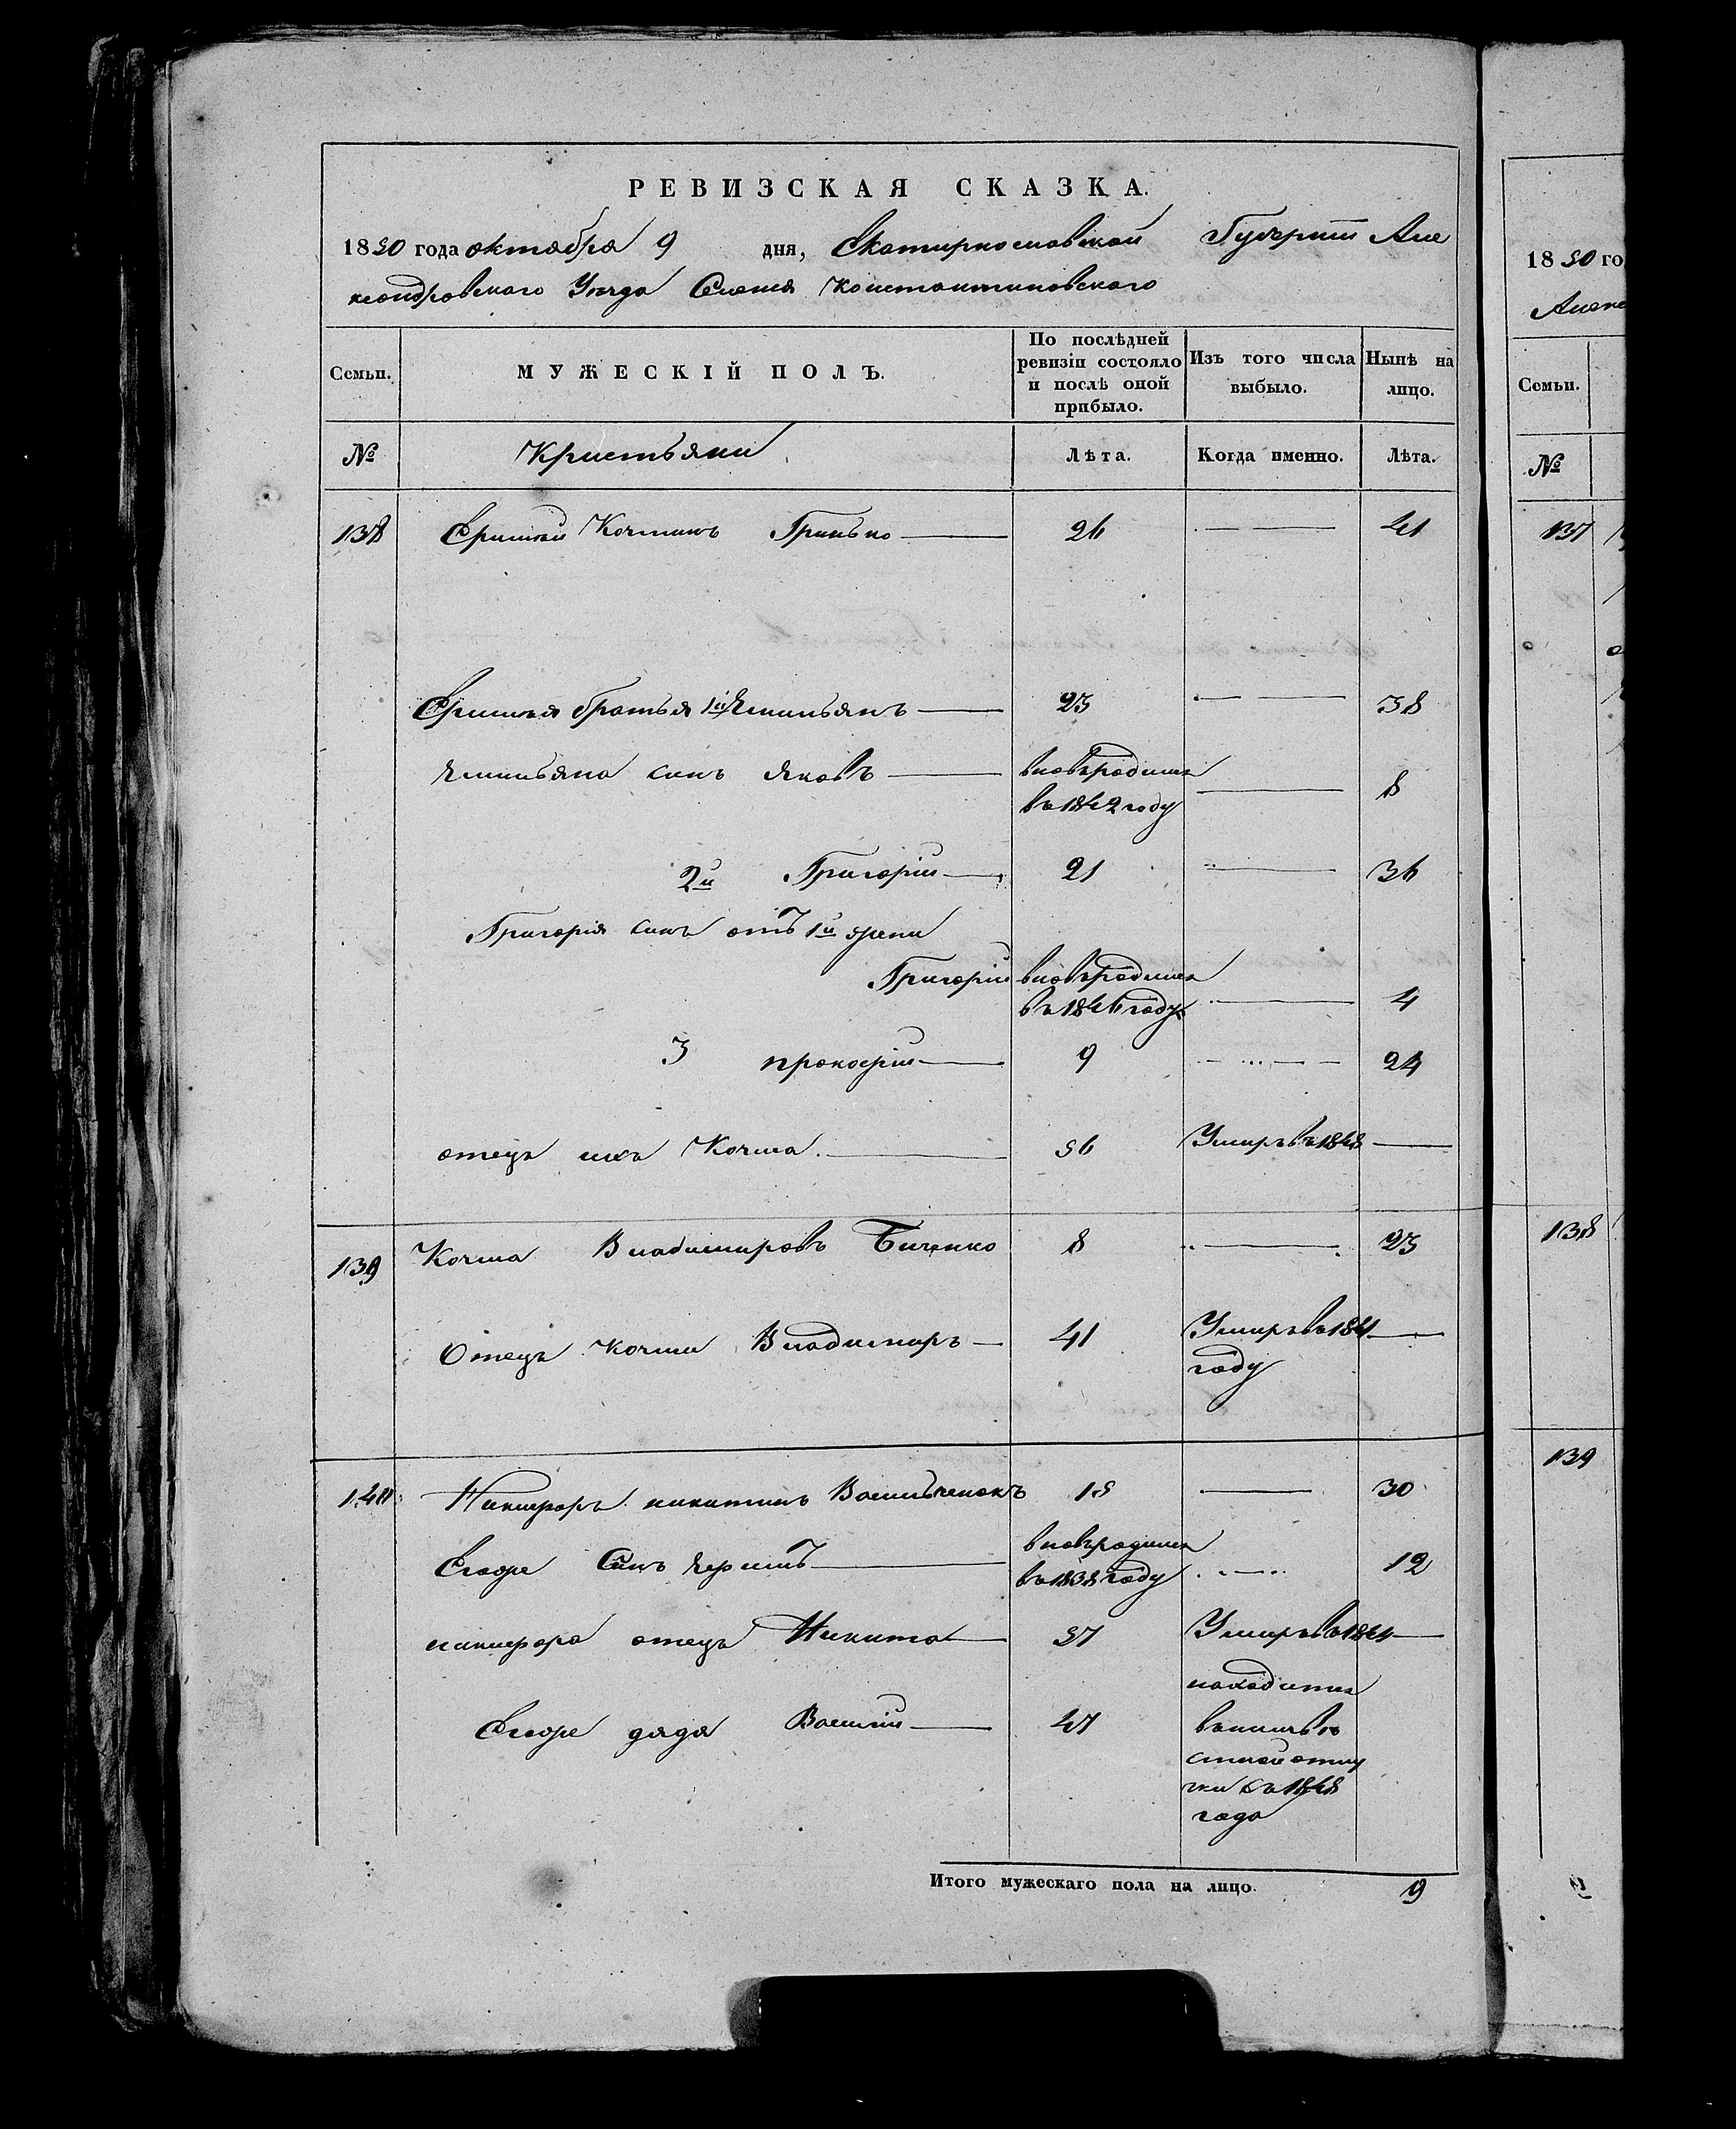 РЕВИЗСКАЯ СКАЗКА.
1850 года октября 9 дня, Екатирнославской Губернии Але
ксондровского Уезда Селенія Константиновского
Семьи.
МУЖЕСКІЙ ПОЛЪ.
По послѣдней ревизіи состояло и послѣ оной прибыло.
Изъ того числа выбыло.
Нынѣ на лицо.
№
Кристьяни
Лѣта.
Когда именно.
Лѣта.
138 Козминъ Гринько 26 41
братья 1й Емильянъ 23 38
Емильяна синъ Яковъ вновьродился 8
въ 1842 году
2й Григорій 21 36
Григорія синъ отъ 1й жени
Григорій вновьродился
въ 1846 году 4
3 прокофій 9 24
отецъ ихъ Козма. 56 Умиръ въ 1848
139 Козма Владимировъ Биченко 8 23
Отецъ Козми Владимиръ 41 Умиръ въ 1841
году
140 Никифоръ никитинъ Васильченокъ 15 30
Егоже Синъ вновьродился
въ 1838 году 12
никифора отецъ Никита 57 Умиръ въ
Егоже дядя Василій 47
находится
съ 1848
года
Итого мужескаго пола на лицо. 9
1850 го
Алекс
Семьи.
№
137
138
139